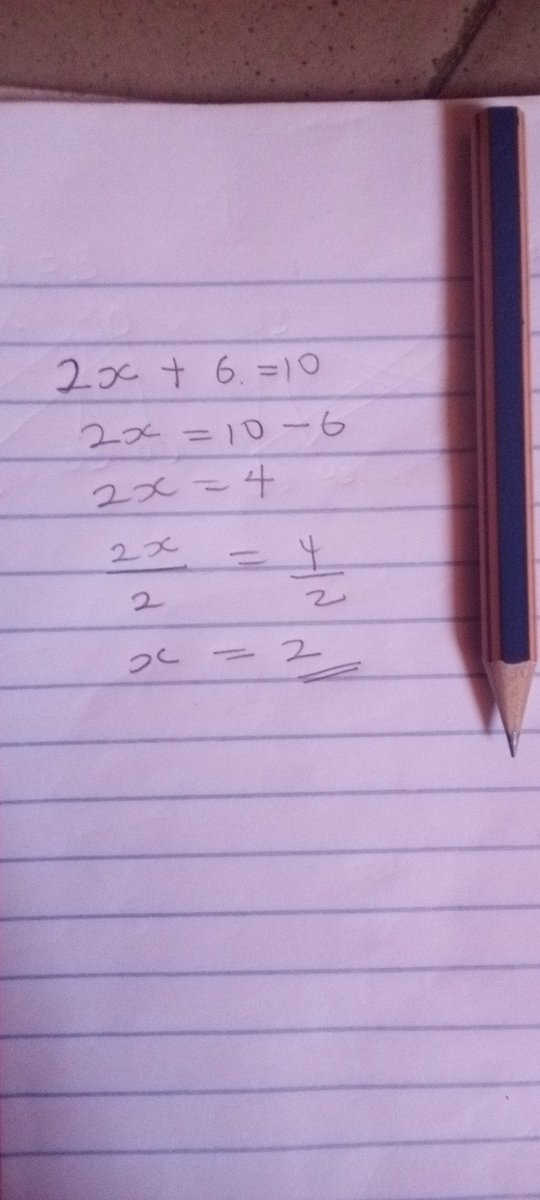 2x + 6. = 10
2x = 10 - 6
2x = 4
2x/2 = 4/2
x = 2